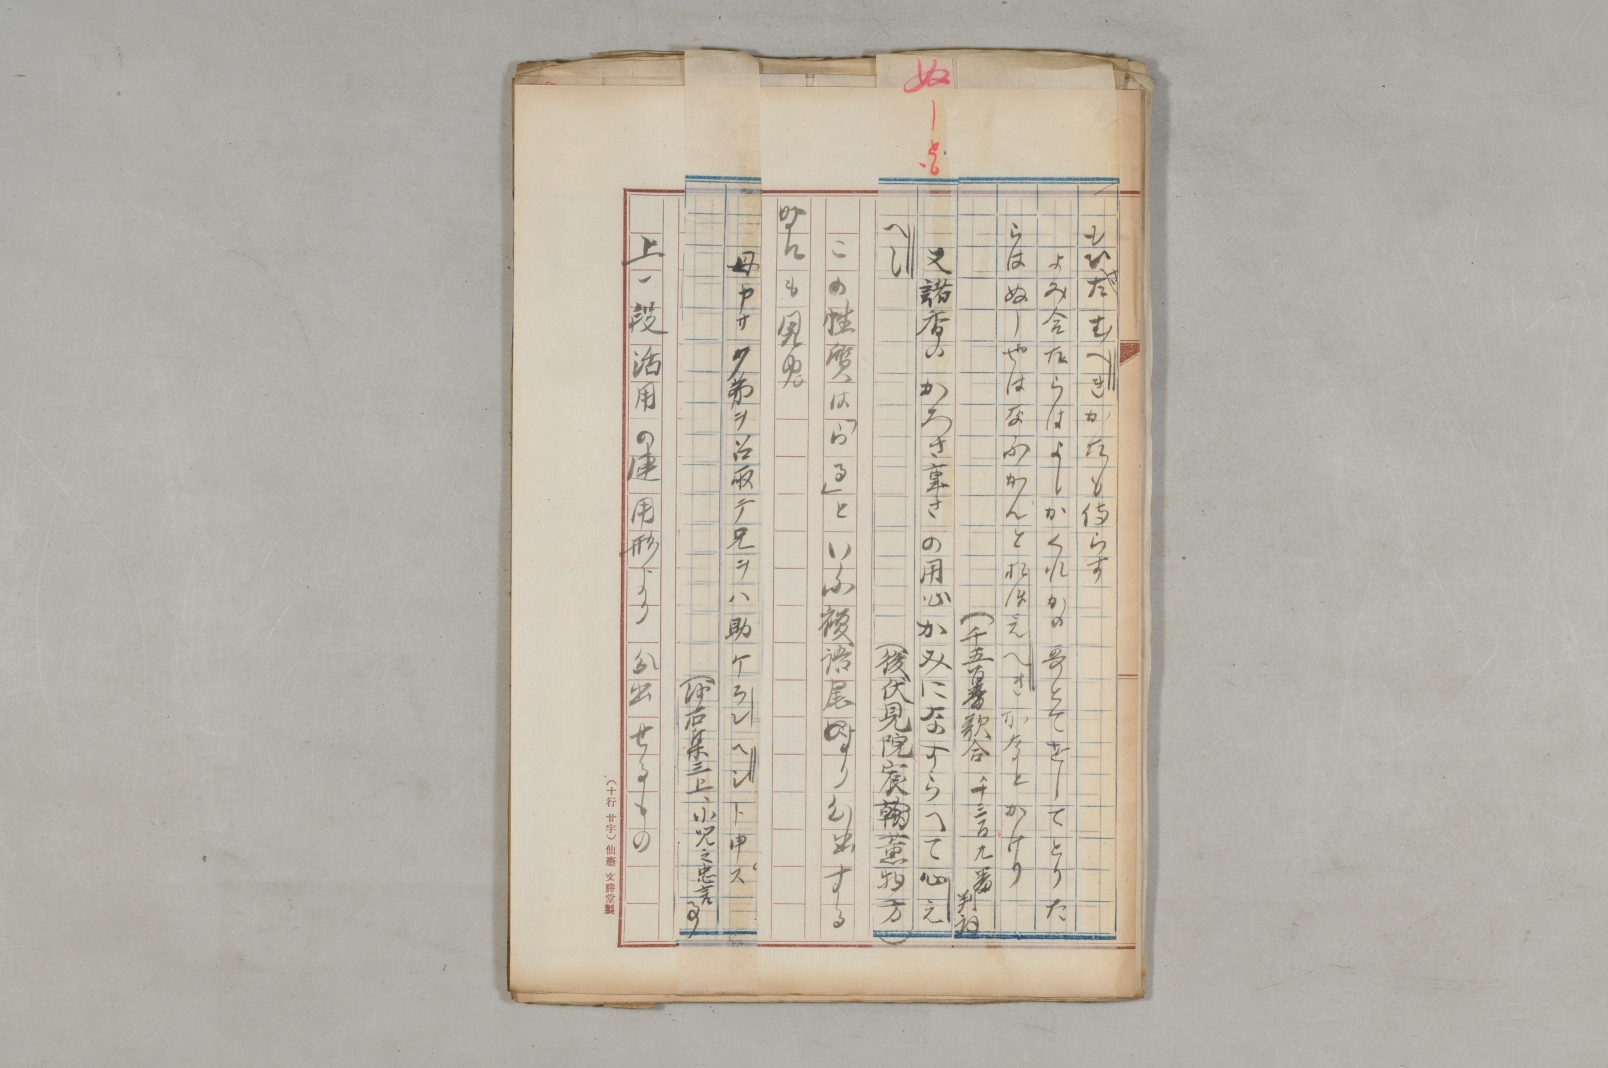 ぬ一も
もひたむへきかたも侍らす
よみ合たらはよしかくれかの哥とてをしてとりた
らはぬしやはなふかんとおほえへきかなとかけり
(千五百番歌合 千三百九番 判詞
又諸香のかろき重さの用心かみになすらへて心え
へし
(後伏見院宸翰薫物方)
この性質は「らる」といふ複語尾より分出する
時にも見ゆ
母ヤサク弟ヲ召取テ兄ヲハ助ケラレヘシト申ス
(沙石集三上、小児之忠言事)
上一段活用の連用形より分出せるもの
(十行廿字)仙臺 文勝堂製